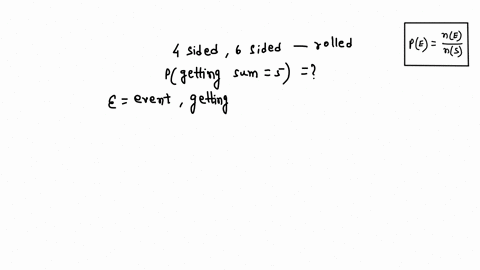 4 sided , 6 sided — rolled
P(getting sum = 5) = ?
E = event , getting
P(E) = n(E)/n(S)